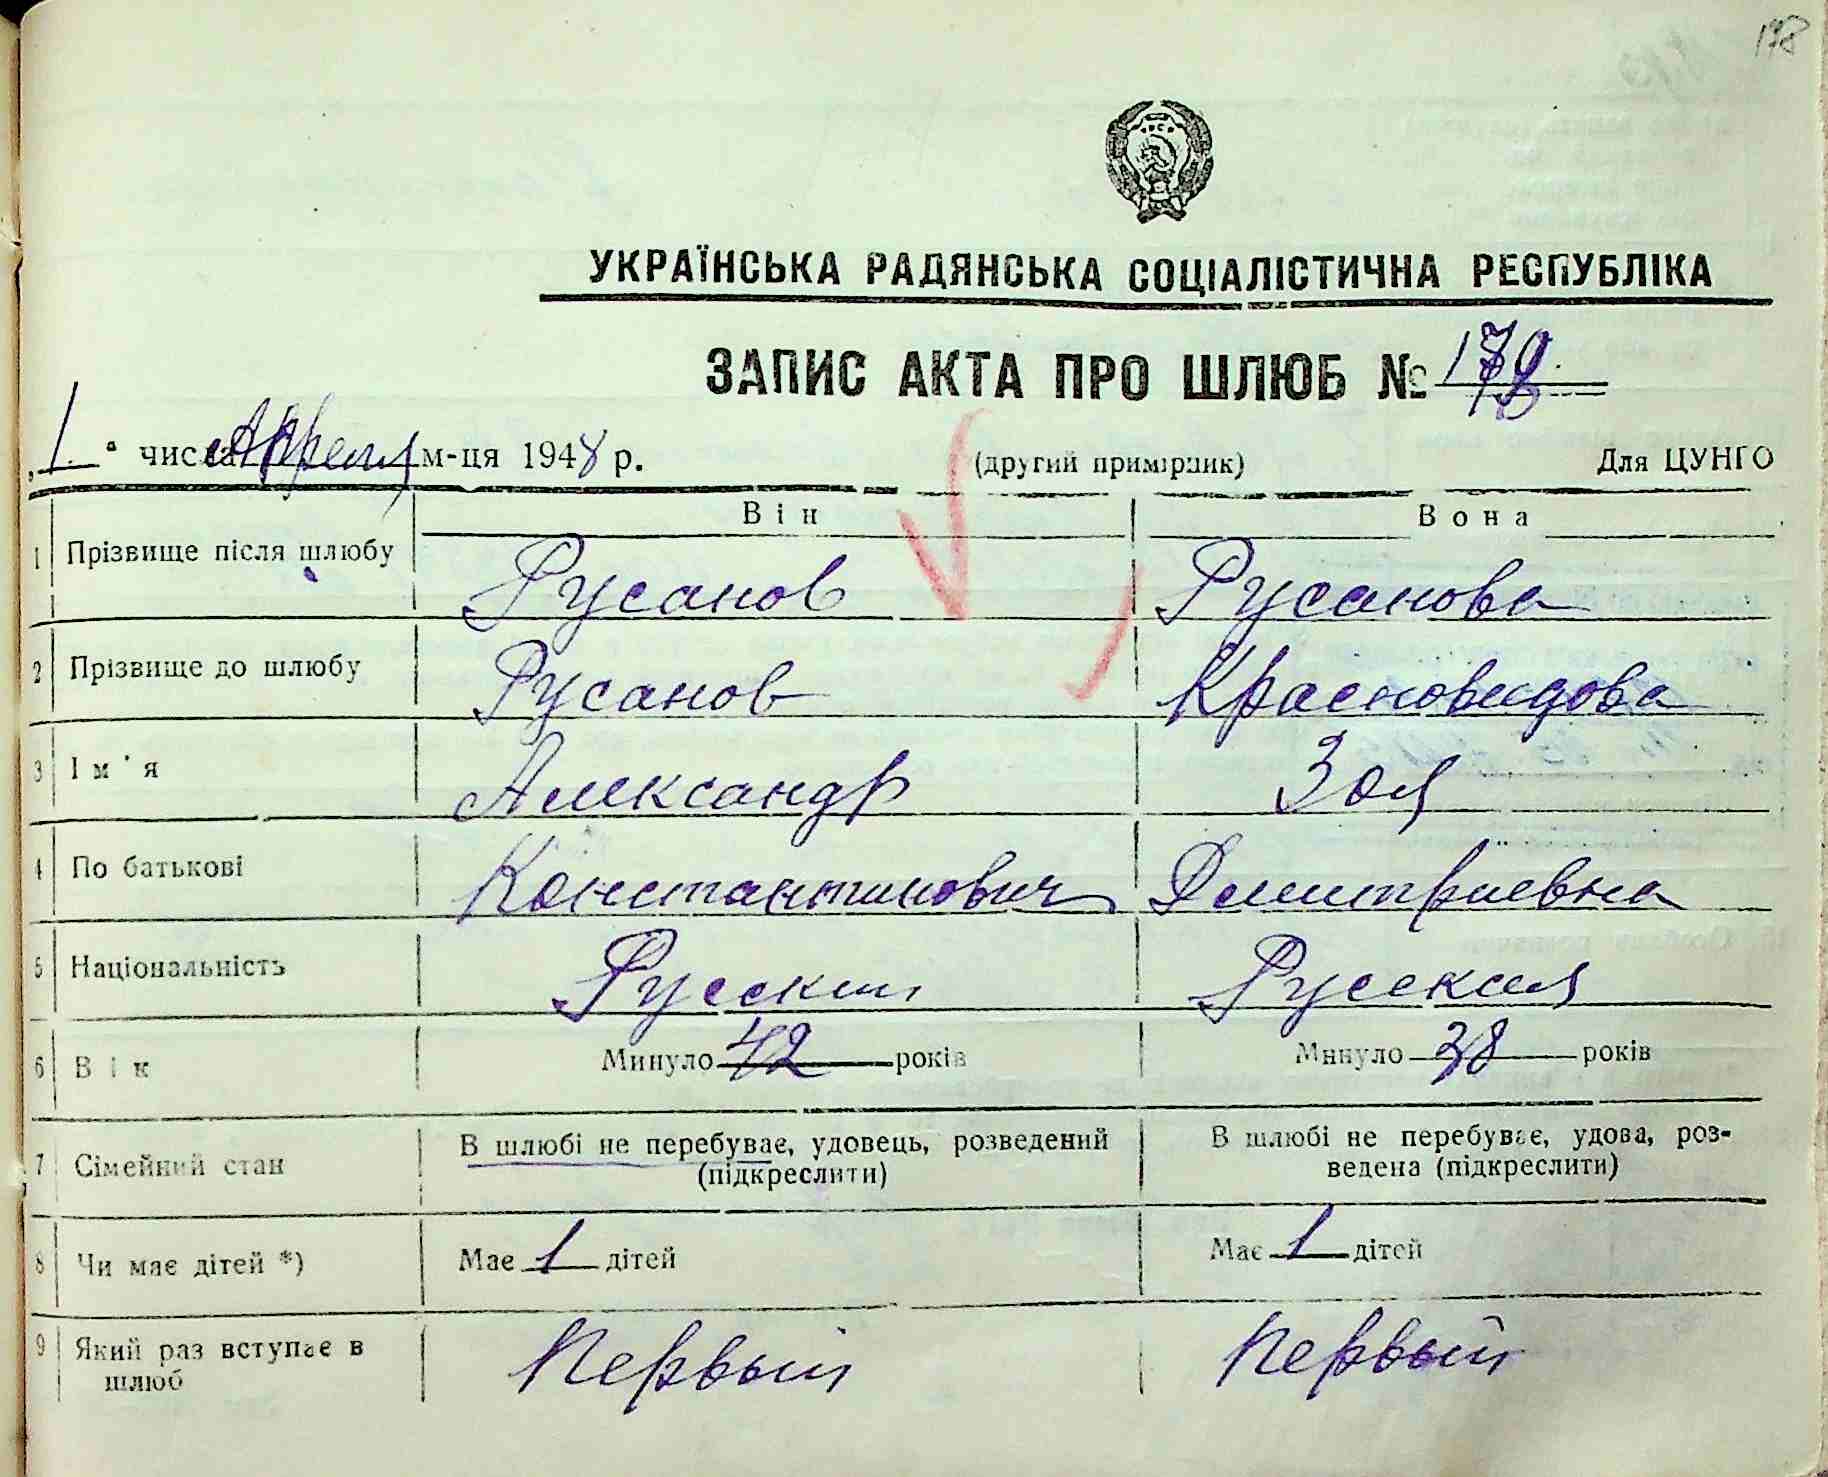 178
УКРАЇНСЬКА РАДЯНСЬКА СОЦІАЛІСТИЧНА РЕСПУБЛІКА
ЗАПИС АКТА ПРО ШЛЮБ №
„1“ числа Апреля м-ця 1948 р. (другий примірник) Для ЦУНГО
Він Вона
1 Прізвище після шлюбу Русанов Русанова
2 Прізвище до шлюбу Русанов Красновидова
3 Ім'я Александр Зоя
4 По батькові Константинович Дмитриевна
5 Національність Русский Русская
6 Вік Минуло 42 років Минуло 38 років
7 Сімейний стан В шлюбі не перебуває, удовець, розведений В шлюбі не перебуває, удова, роз-
(підкреслити) ведена (підкреслити)
8 Чи має дітей *) Має 1 дітей Має 1 дітей
9 Який раз вступає в Первый Первый
шлюб